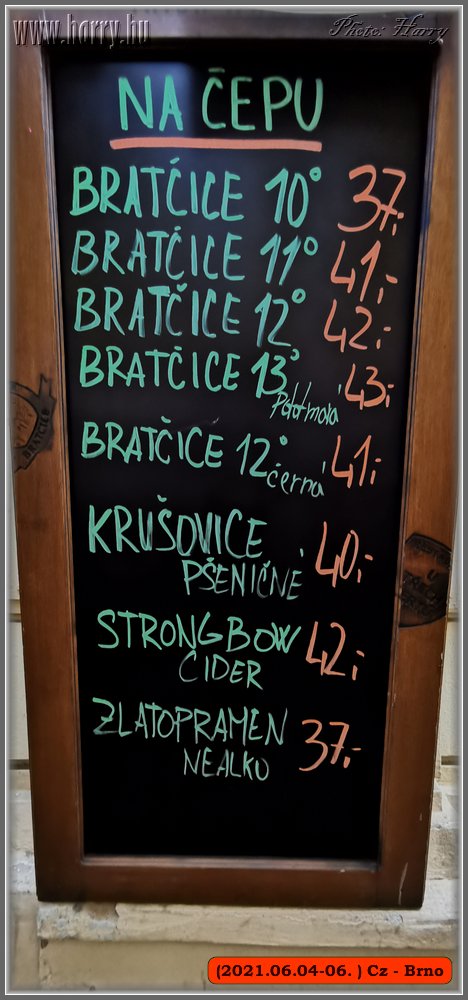 www.horry.hu
Photo: Harry
NA ČEPU
BRATČICE 10° 37,-
BRATČICE 11° 41,-
BRATČICE 12° 42,-
BRATČICE 13° 43,-
Polotmavá
BRATČICE 12° 41,-
černá
KRUŠOVICE 40,-
PŠENIČNÉ
STRONGBOW 42,-
CIDER
ZLATOPRAMEN 37,-
NEALKO
BRATČICE
(2021.06.04-06. ) Cz - Brno